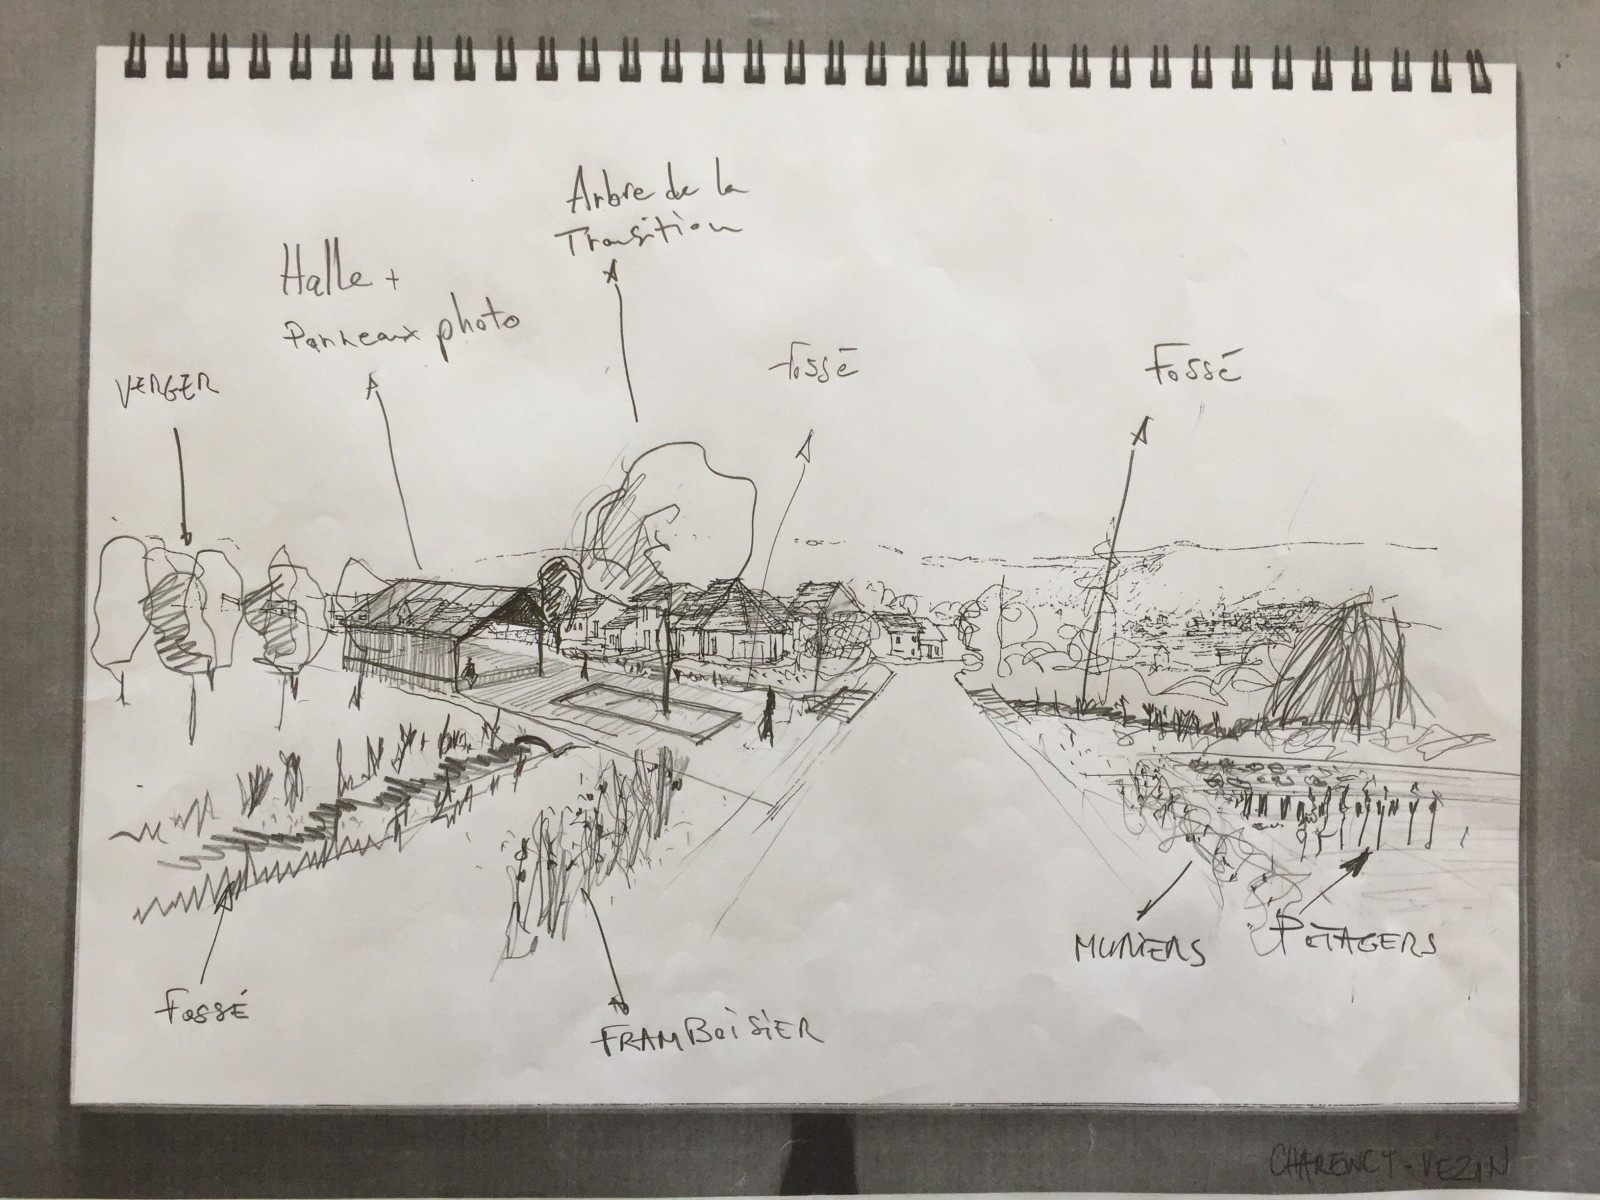 Arbre de la
Transition
Halle +
Panneaux photo
VERGER
Fossé
Fossé
MURIERS
POTAGERS
FOSSÉ
FRAMBOISIER
CHARENCY - VEZIN